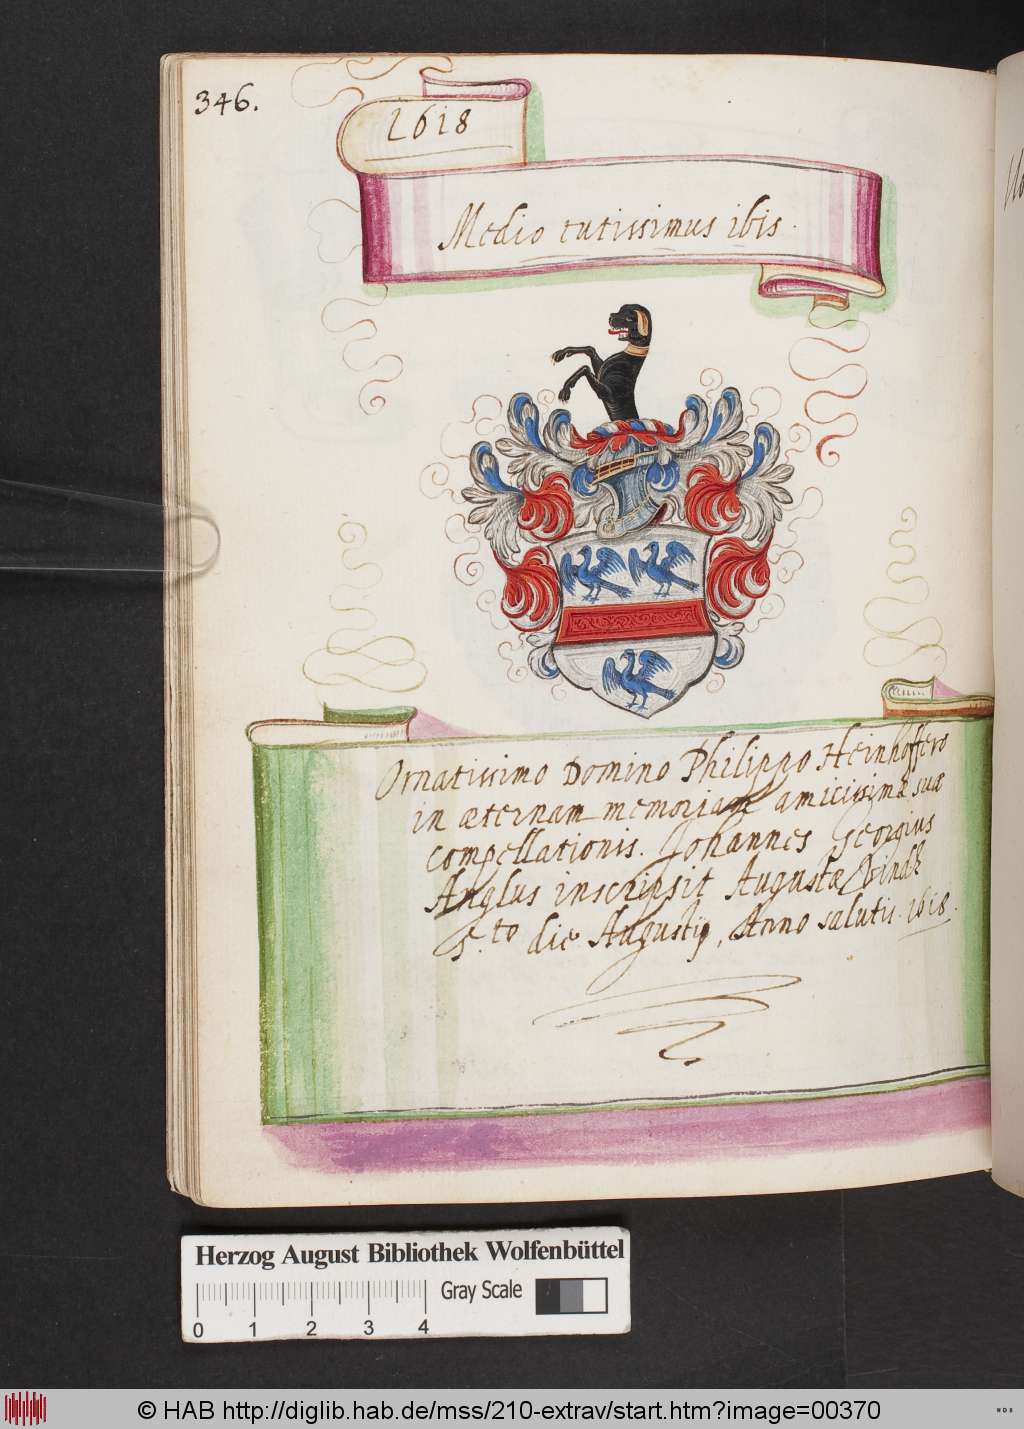 346.
1618
Medio tutissimus ibis.
Ornatissimo Domino Philippo Heinhoffero
in æternam memoriam amicissimæ suæ
compellationis. Johannes Georgius
Anglus inscripsit Augustæ Vindel
5.to die Augustij, Anno salutis. 1618.
Herzog August Bibliothek Wolfenbüttel
Gray Scale
0 1 2 3 4
© HAB http://diglib.hab.de/mss/210-extrav/start.htm?image=00370